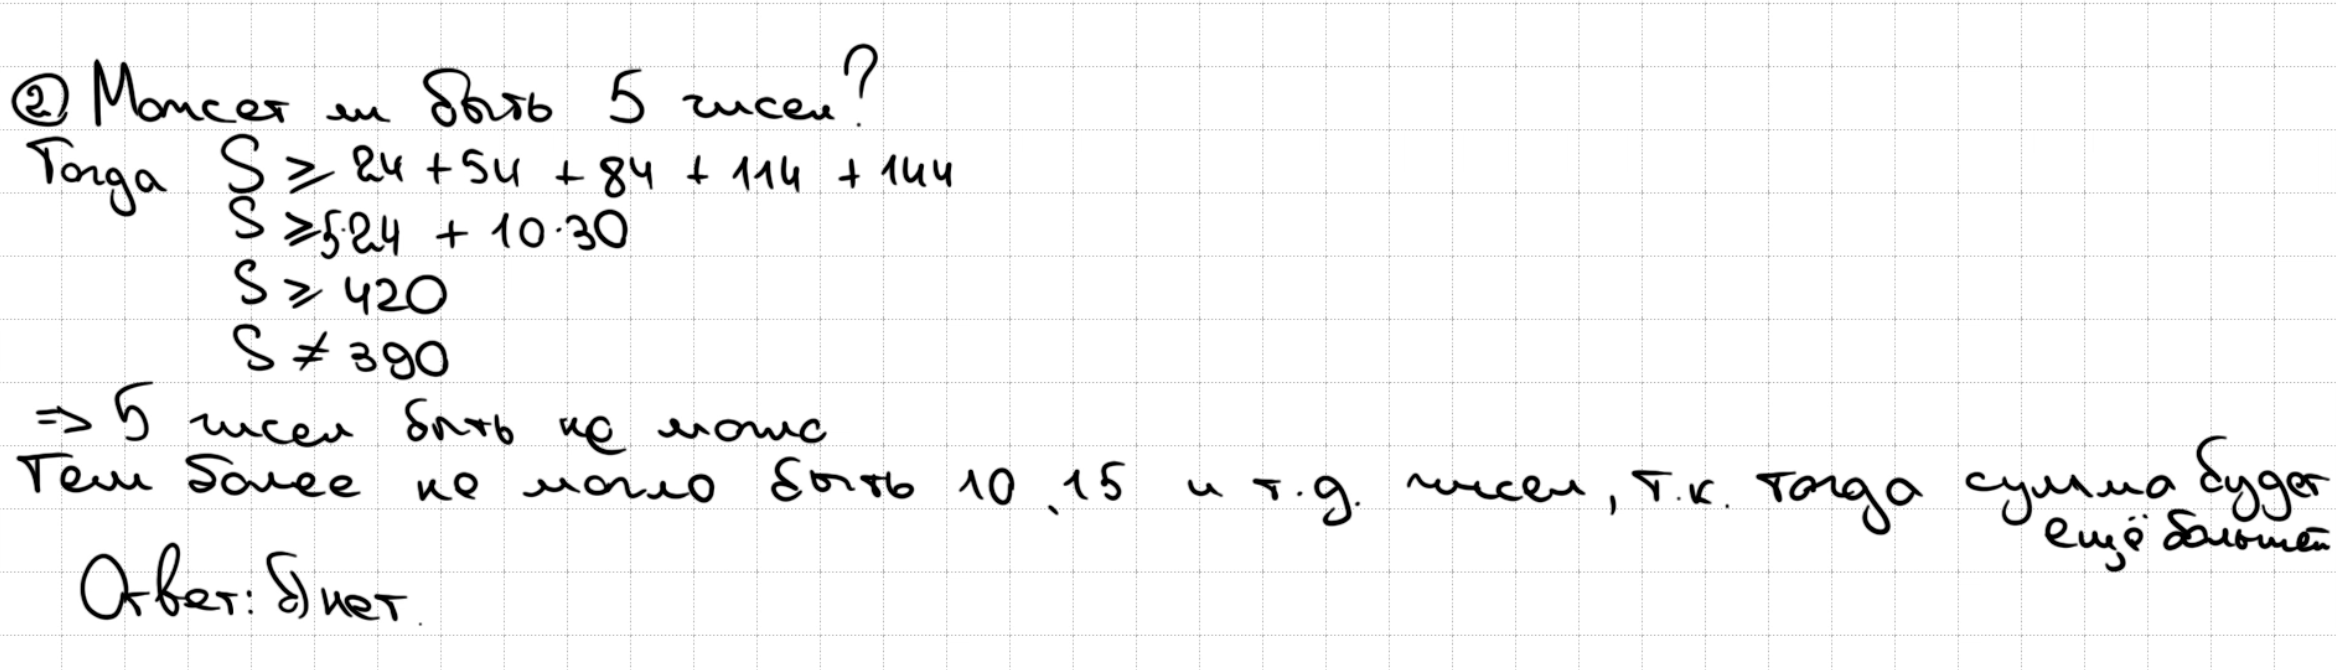 ② Может ли быть 5 чисел?
Тогда S ⩾ 24 + 54 + 84 + 114 + 144
S ⩾ 5·24 + 10·30
S ⩾ 420
S ≠ 390
=> 5 чисел быть не може
Тем более не могло быть 10, 15 и т.д. чисел, т.к. тогда сумма будет
ещё больше
Ответ: б) нет.